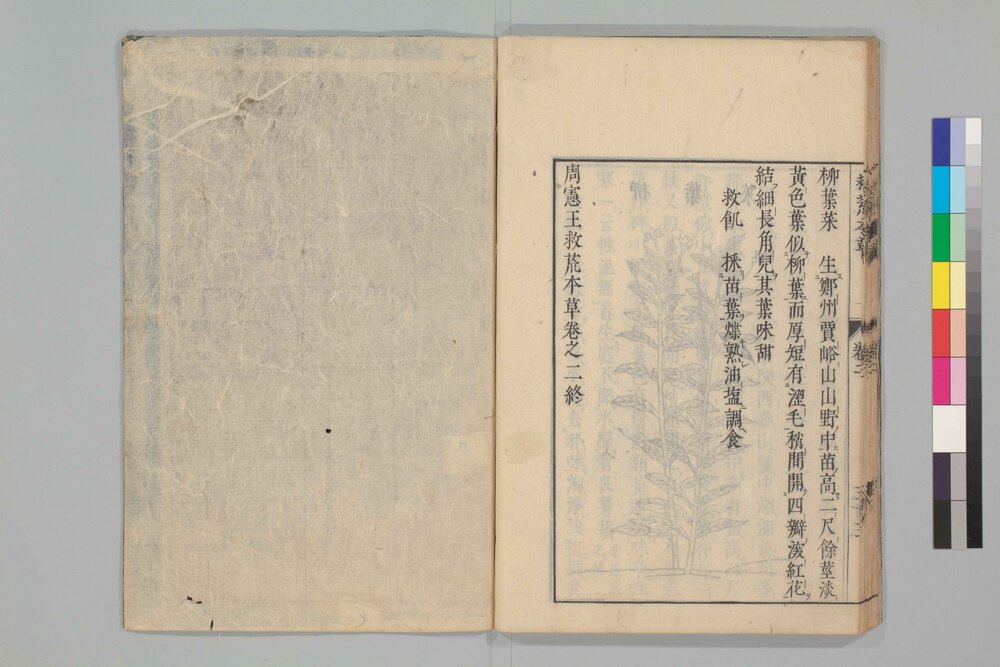 柳葉菜　生鄭州賈峪山山野中苗高二尺餘莖淡
黃色葉似柳葉而厚短有澀毛稍間開四瓣深紅花
結細長角兒其葉味甜
救飢　採苗葉煠熟油塩調食
周憲王救荒本草卷之二終